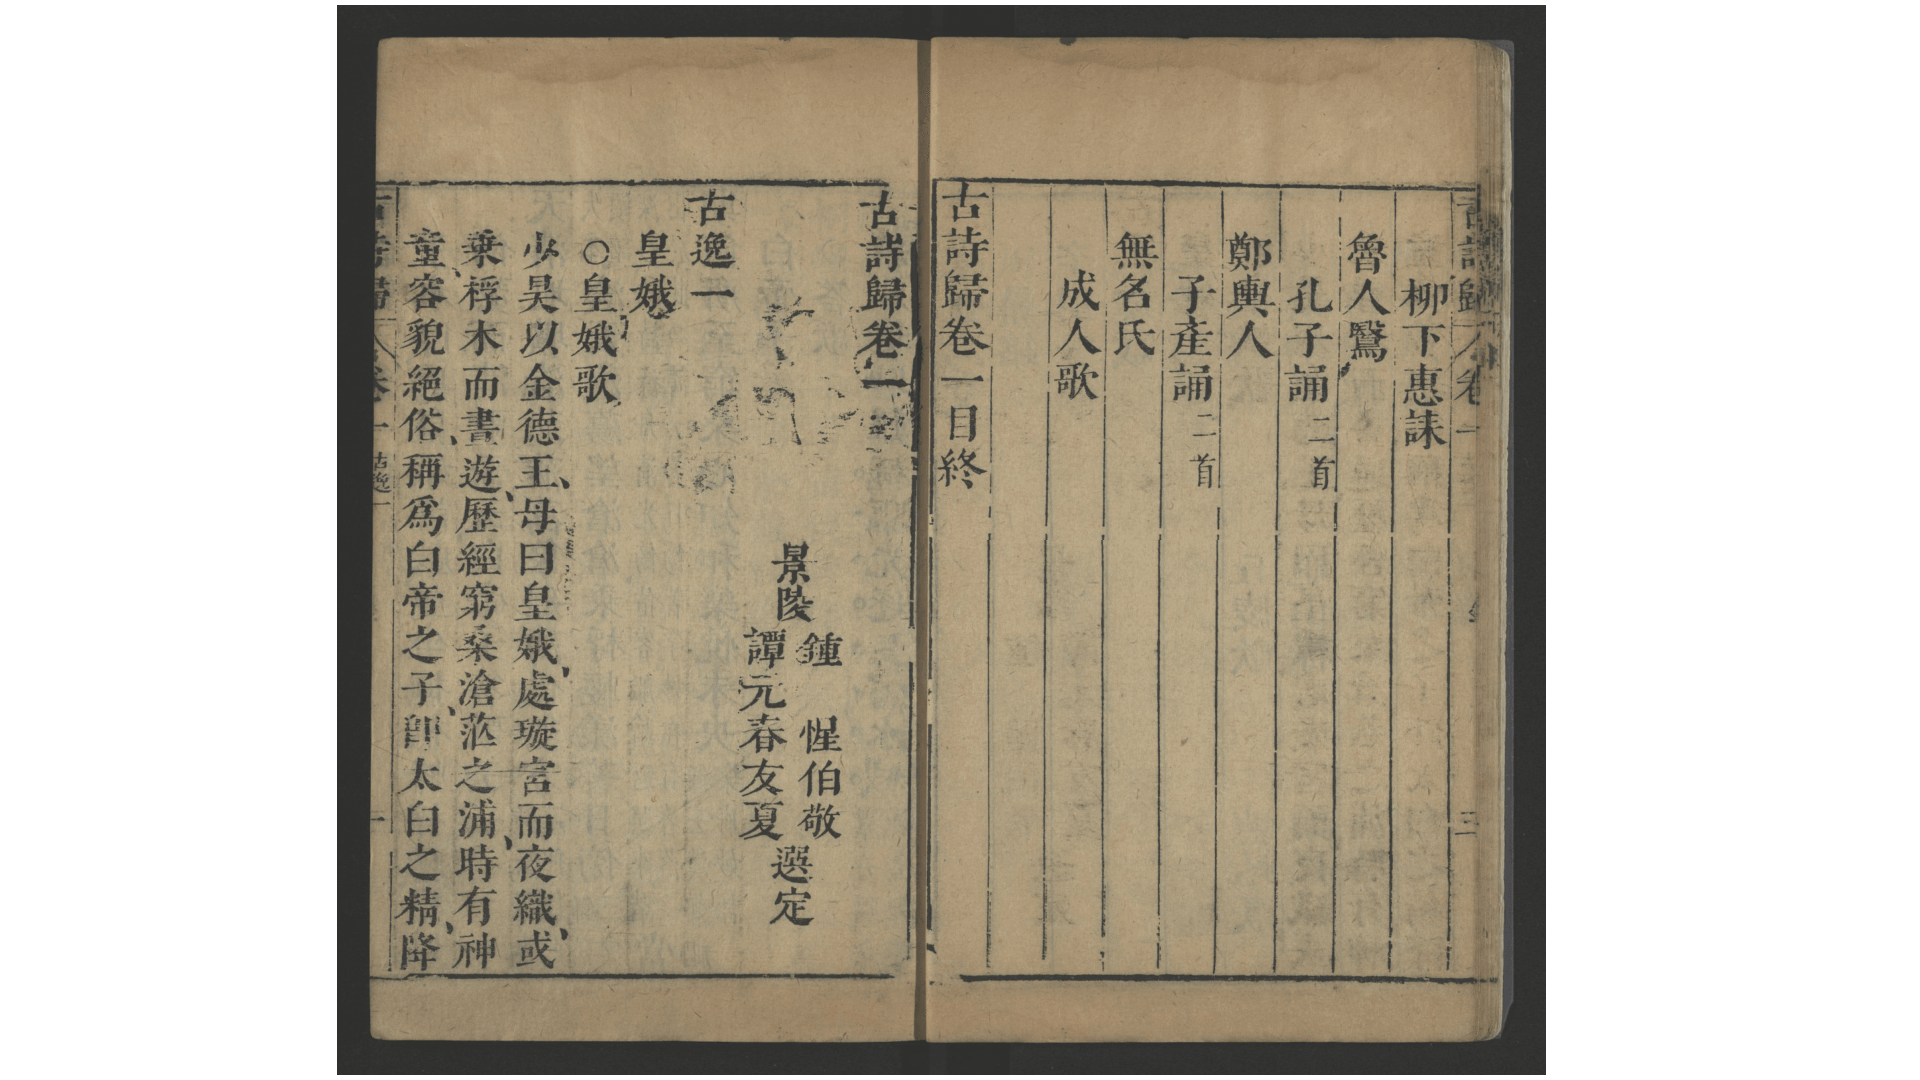 古詩歸 卷一 三
柳下惠誄
魯人鷖
孔子誦二首
鄭輿人
子產誦二首
無名氏
成人歌
古詩歸卷一目終
古詩歸卷一
景陵
鍾惺伯敬
譚元春友夏
選定
古逸一
皇娥
○皇娥歌
少昊以金德王、母曰皇娥、處璇宮而夜織、或
乗桴木而晝遊、歷經窮桑滄茫之浦、時有神
童、容貌絕俗、稱爲白帝之子、卽太白之精、降
古詩歸 卷一 古逸一 一